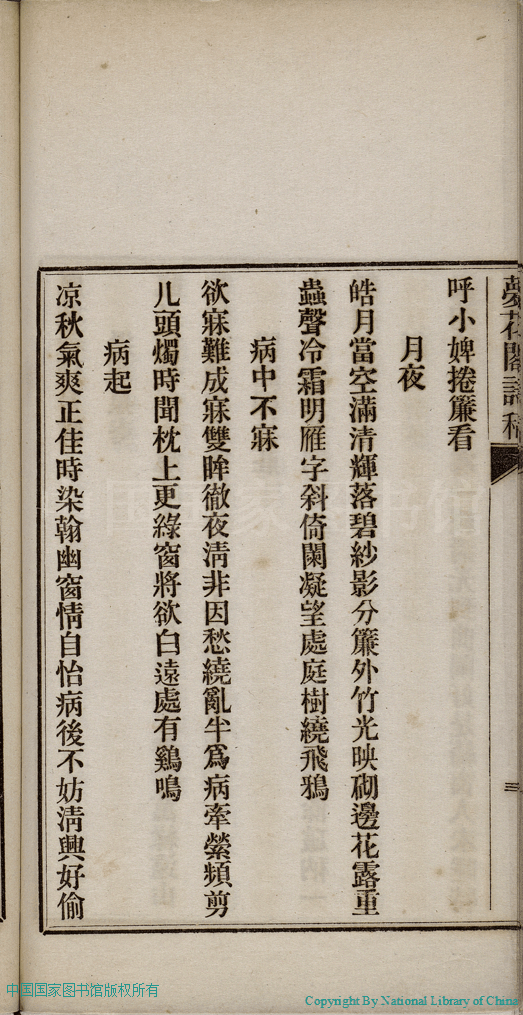 夢花閣詩稿
三
呼小婢捲簾看
月夜
皓月當空滿清輝落碧紗影分簾外竹光映砌邊花露重
蟲聲冷霜明雁字斜倚闌凝望處庭樹繞飛鴉
病中不寐
欲寐難成寐雙眸徹夜清非因愁繞亂半爲病牽縈頻剪
几頭燭時聞枕上更綠窗將欲白遠處有鷄鳴
病起
凉秋氣爽正佳時染翰幽窗情自怡病後不妨清興好偷
中国国家图书馆版权所有
Copyright By National Library of China